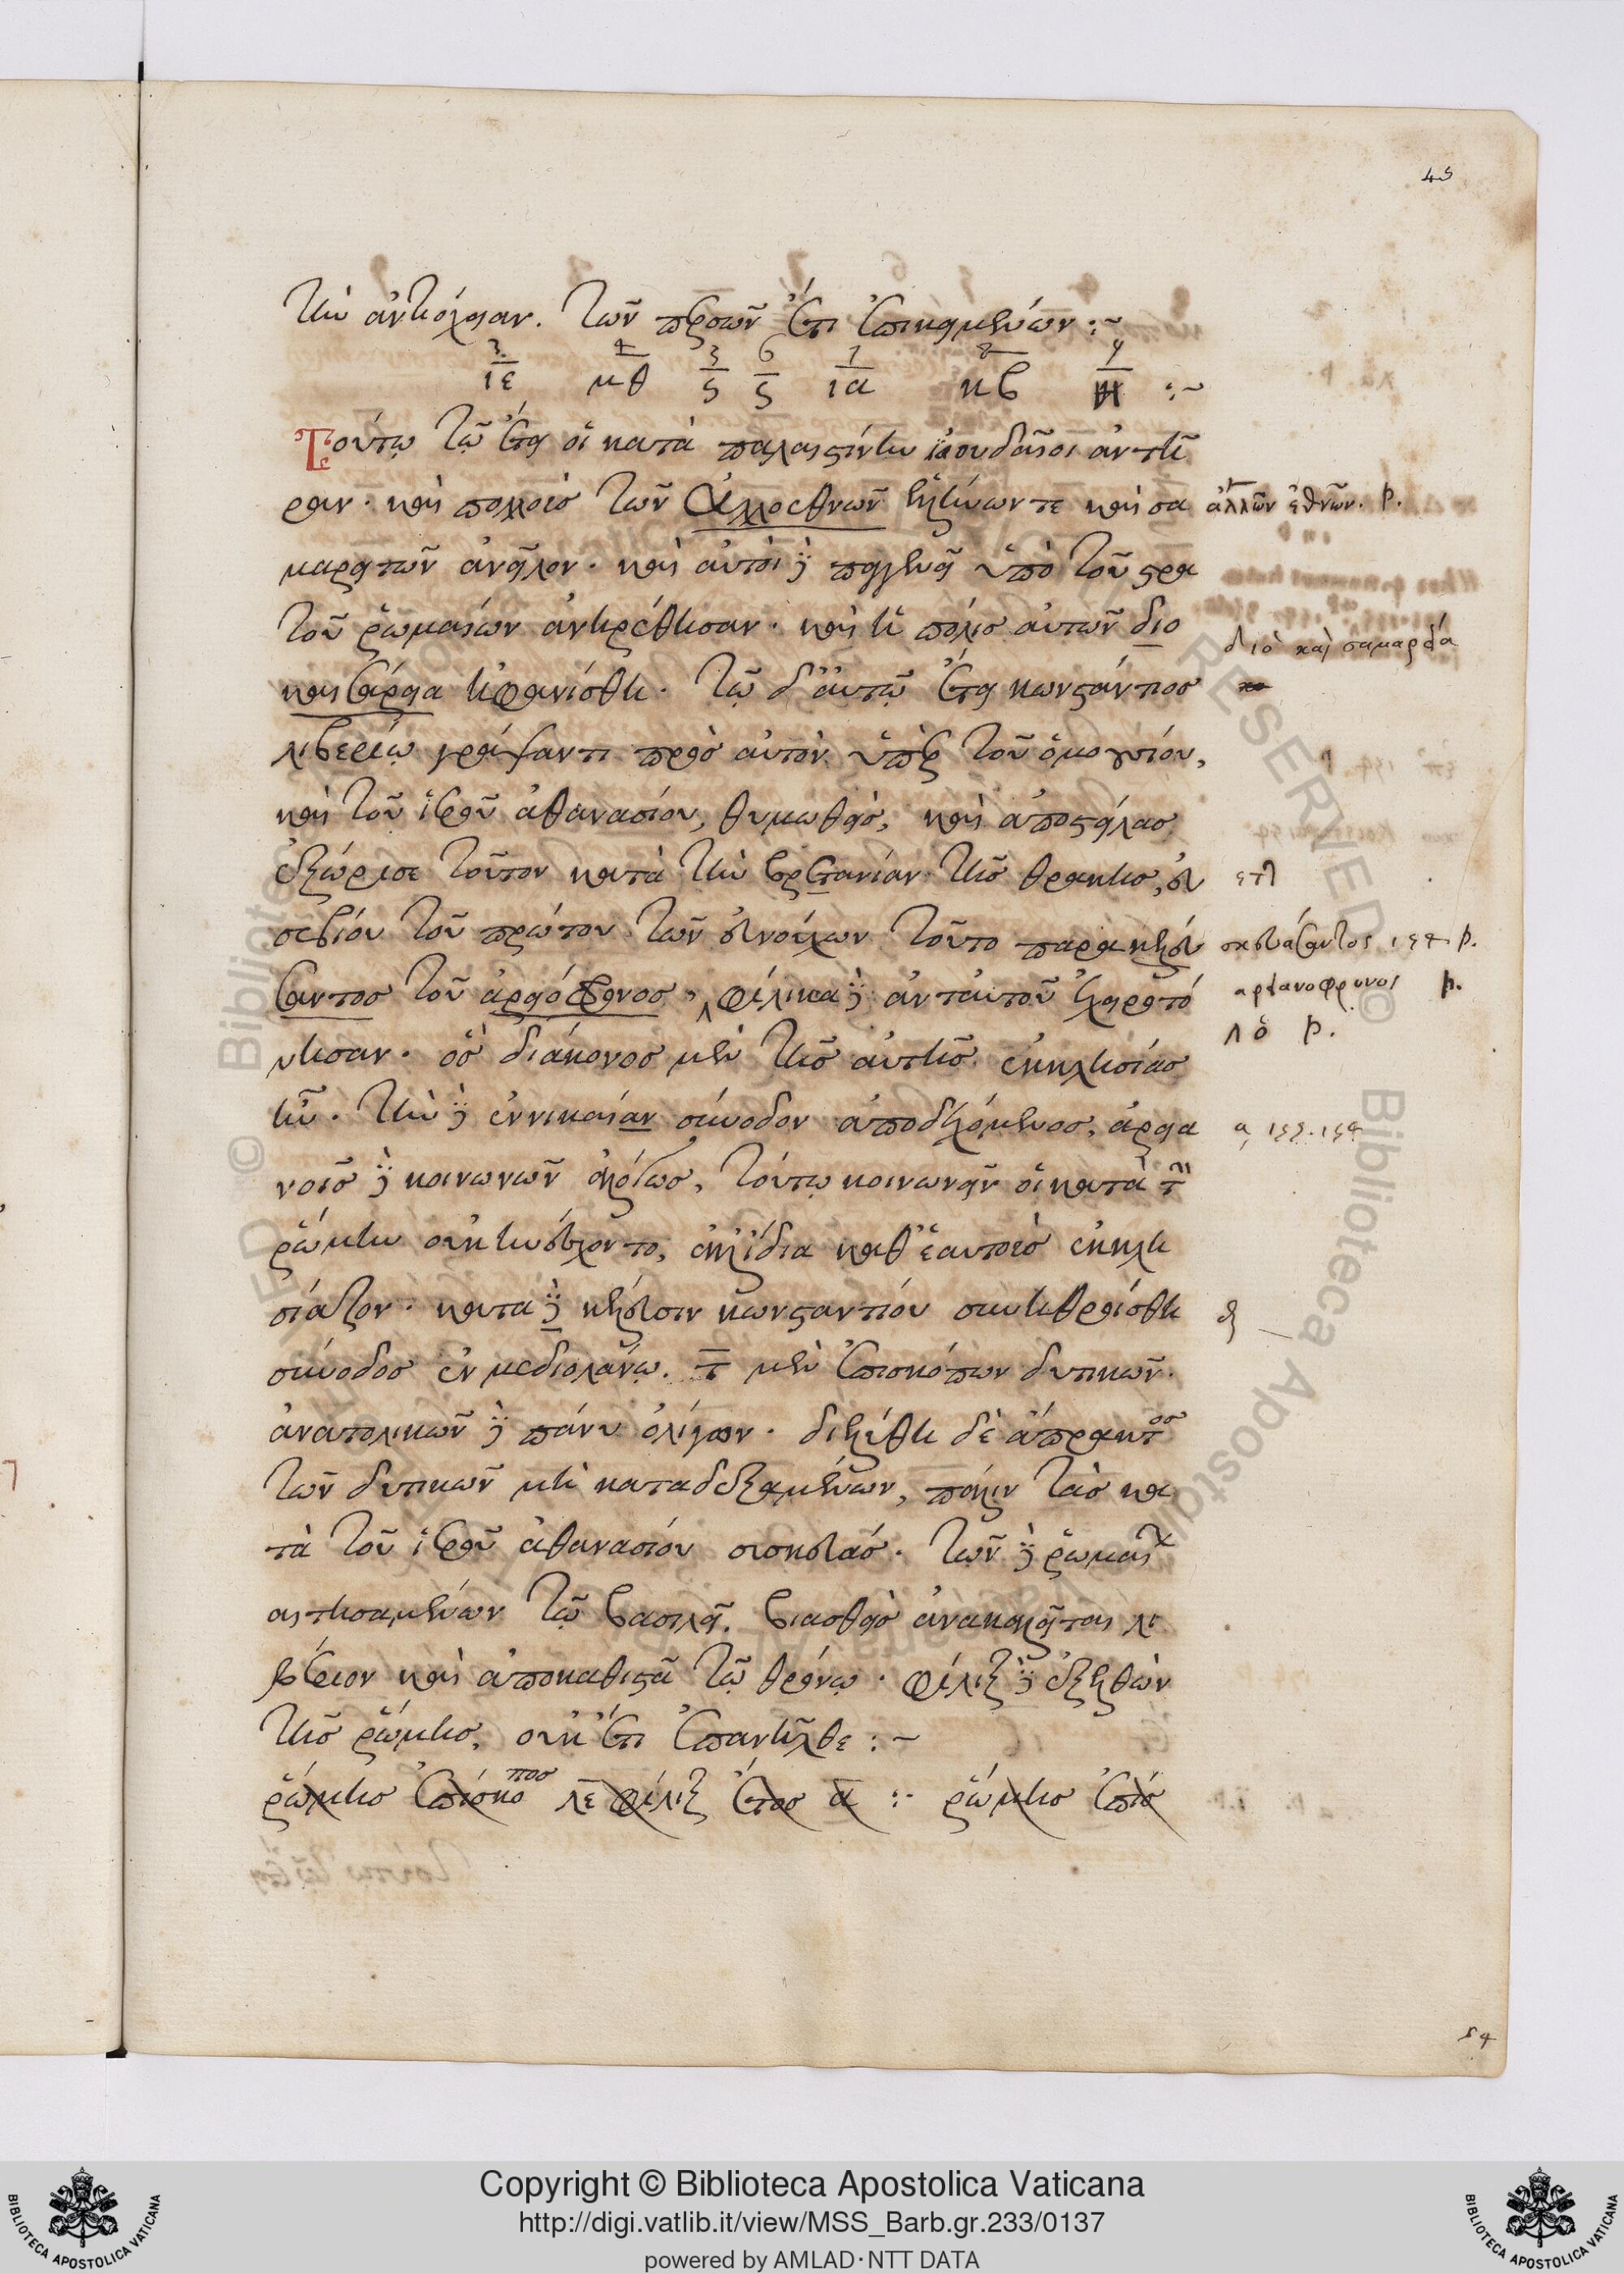 45
τὴν ἀντιόχειαν. τῶν περσῶν ἔτι ἐπικειμένων :~
3 4 3 6 7 8 9
ιε κθ ς ς ια κβ η :~
Τούτῳ τῷ ἔτει οἱ κατὰ παλαιστίνην ἰουδαῖοι ἀντῆ
ραν· καὶ πολλοὺς τῶν ἀλλοεθνῶν ἑλλήνων τε καὶ σα ἀλλῶν ἐθνῶν. p.
μαρειτῶν ἀνεῖλον· καὶ αὐτοὶ δὲ παγγενεῖ ὑπὸ τοῦ στρα
τοῦ ῥωμαίων ἀνῃρέθησαν· καὶ ἡ πόλις αὐτῶν διο διὸ καὶ σαμαρεία
καισάρεια ἠφανίσθη. τῷ δ' αὐτῷ ἔτει κωνστάντιος
λιβερίῳ γράψαντι πρὸς αὐτὸν ὑπὲρ τοῦ ὁμοουσίου,
καὶ τοῦ ἱεροῦ ἀθανασίου, θυμωθεὶς, καὶ ἀποστείλας
ἐξώρισε τοῦτον κατὰ τὴν βρετανίαν τῆς θράκης, εὐ
σεβίου τοῦ πρώτου τῶν εὐνούχων τοῦτο παρακελευ
σαντος τοῦ ἀρειόφρονος, φίλικα δὲ ἀντ' αὐτοῦ ἐχειροτό αρειανοφρονος p.
νησαν. ὃς διάκονος μὲν τῆς αὐτῆς ἐκκλησίας λὸ p.
ἦν. τὴν δὲ ἐν νικαίαν σύνοδον ἀποδεχόμενος, ἀρεια
νοῖς δὲ κοινωνῶν ἐκόντως, τούτῳ κοινωνεῖν οἱ κατὰ τὴν
ῥώμην οὐκ ἠνείχοντο, ἀλλ' ἰδία καθ' ἑαυτοὺς ἐκκλη
σίαζον. κατα δὲ κέλευσιν κωνσταντίου συνηθροίσθη
σύνοδος ἐν μεδιολάνῳ. τ μὲν ἐπισκόπων δυτικῶν.
ἀνατολικῶν δὲ πάνυ ὀλίγων. διελύθη δὲ ἄπρακτος
τῶν δυτικῶν μὴ καταδεξαμένων, ποιεῖν τὰς κα
τὰ τοῦ ἱεροῦ ἀθανασίου συσκευάς. τῶν δὲ ῥωμαίων
αιτησαμένων τῷ βασιλεῖ. βιασθεὶς ἀνακαλεῖται λι
βέριον καὶ ἀποκαθιστᾶ τῷ θρόνῳ. φίλιξ δὲ ἐξελθὼν
τῆς ῥώμης, οὐκ ἔτι ἐπανῆλθε :~
ῥώμης ἐπίσκοπος λε φίλιξ ἔτος α :- ῥώμης ἐπίσ
54
Copyright © Biblioteca Apostolica Vaticana
http://digi.vatlib.it/view/MSS_Barb.gr.233/0137
powered by AMLAD·NTT DATA
BIBLIOTECA APOSTOLICA VATICANA
BIBLIOTECA APOSTOLICA VATICANA